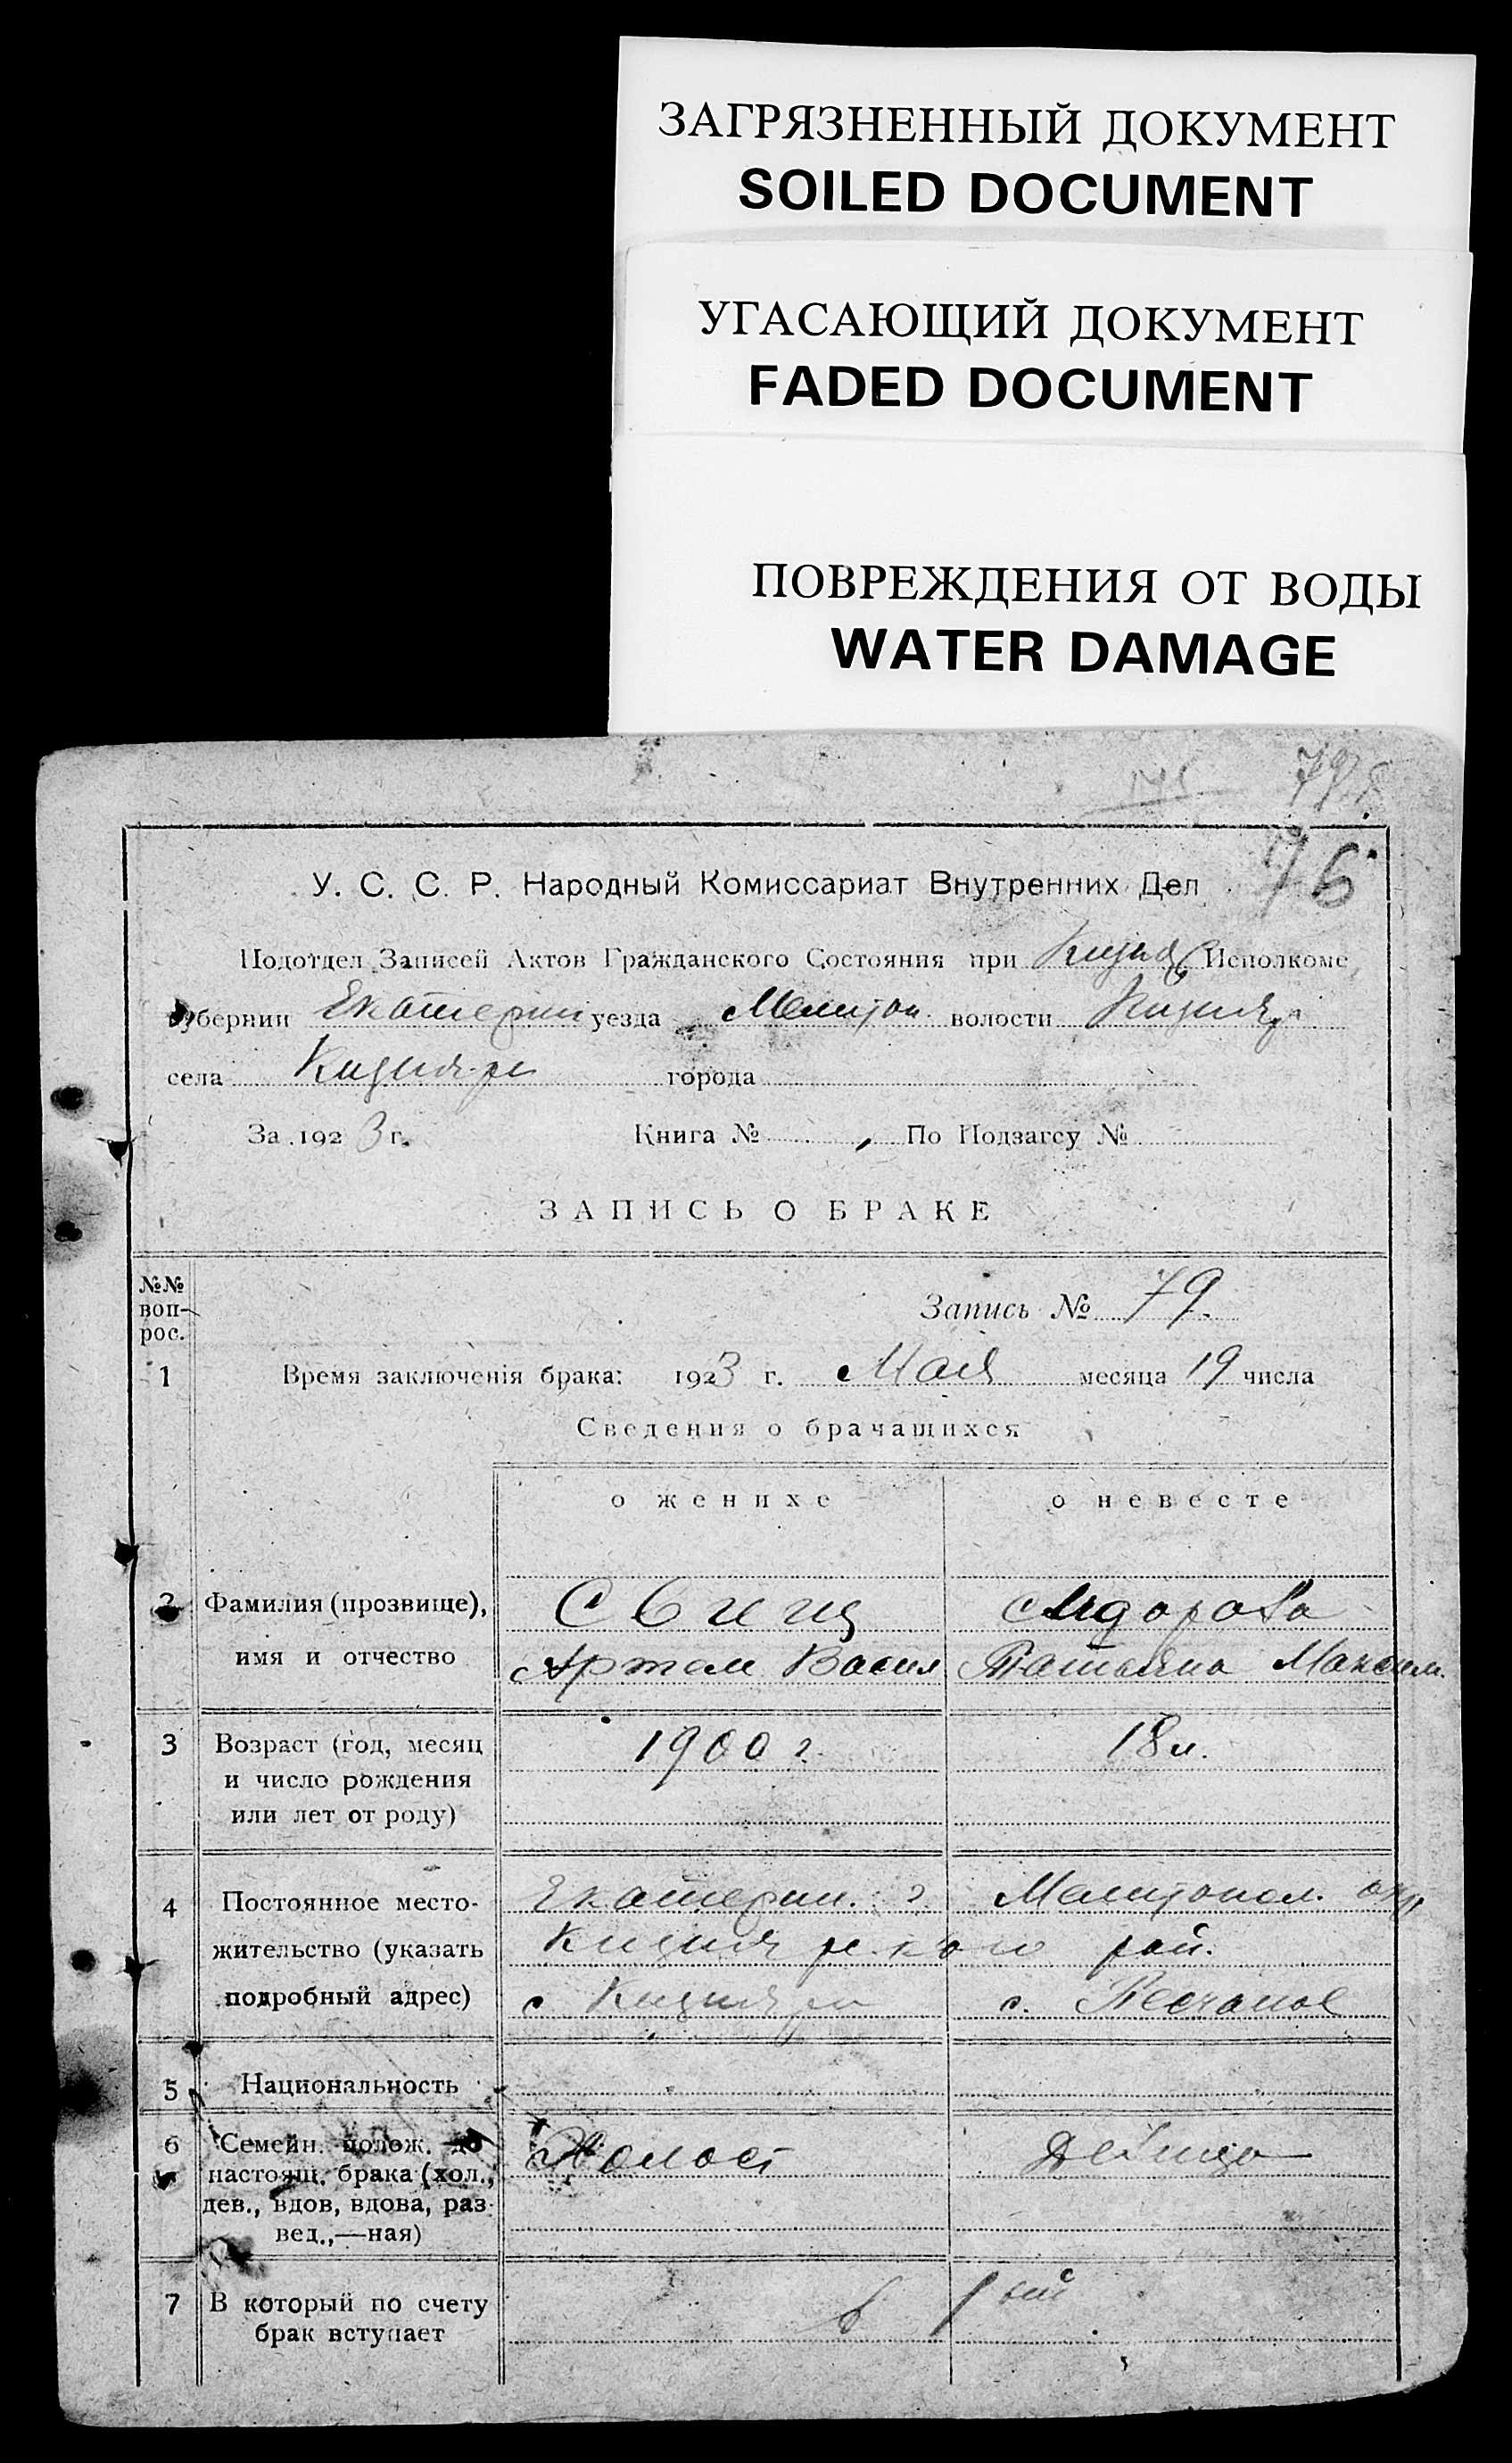 ЗАГРЯЗНЕННЫЙ ДОКУМЕНТ
SOILED DOCUMENT
УГАСАЮЩИЙ ДОКУМЕНТ
FADED DOCUMENT
ПОВРЕЖДЕНИЯ ОТ ВОДЫ
WATER DAMAGE
76
У. С. С. Р. Народный Комиссариат Внутренних Дел
Подотдел Записей Актов Гражданского Состояния при Кизия Исполкоме
губернии Екатерин уезда Мелитоп. волости Кизияр
села Кизияре города
За 1923 г. Книга № По Подзагсу №
ЗАПИСЬ О БРАКЕ
№№ воп-рос.
Запись № 79.
1 Время заключенія брака: 1923 г. Мая месяца 19 числа
Сведения о брачащихся
о женихе о невесте
2 Фамилия (прозвище), Свинц Сидорова
имя и отчество Артем Васил Татьяна Максим.
3 Возраст (год, месяц 1900 г. 18 л.
и число рождения
или лет от роду)
4 Постоянное место- Екатерин. г Мелитопол. окр
жительство (указать Кизиярского рай.
подробный адрес) с Кизияре с. Песчаное
5 Национальность
6 Семейн. полож. до Холост Девица
настоящ. брака (хол.,
дев., вдов, вдова, раз-
вед.,—ная)
7 В который по счету в 1ый
брак вступает